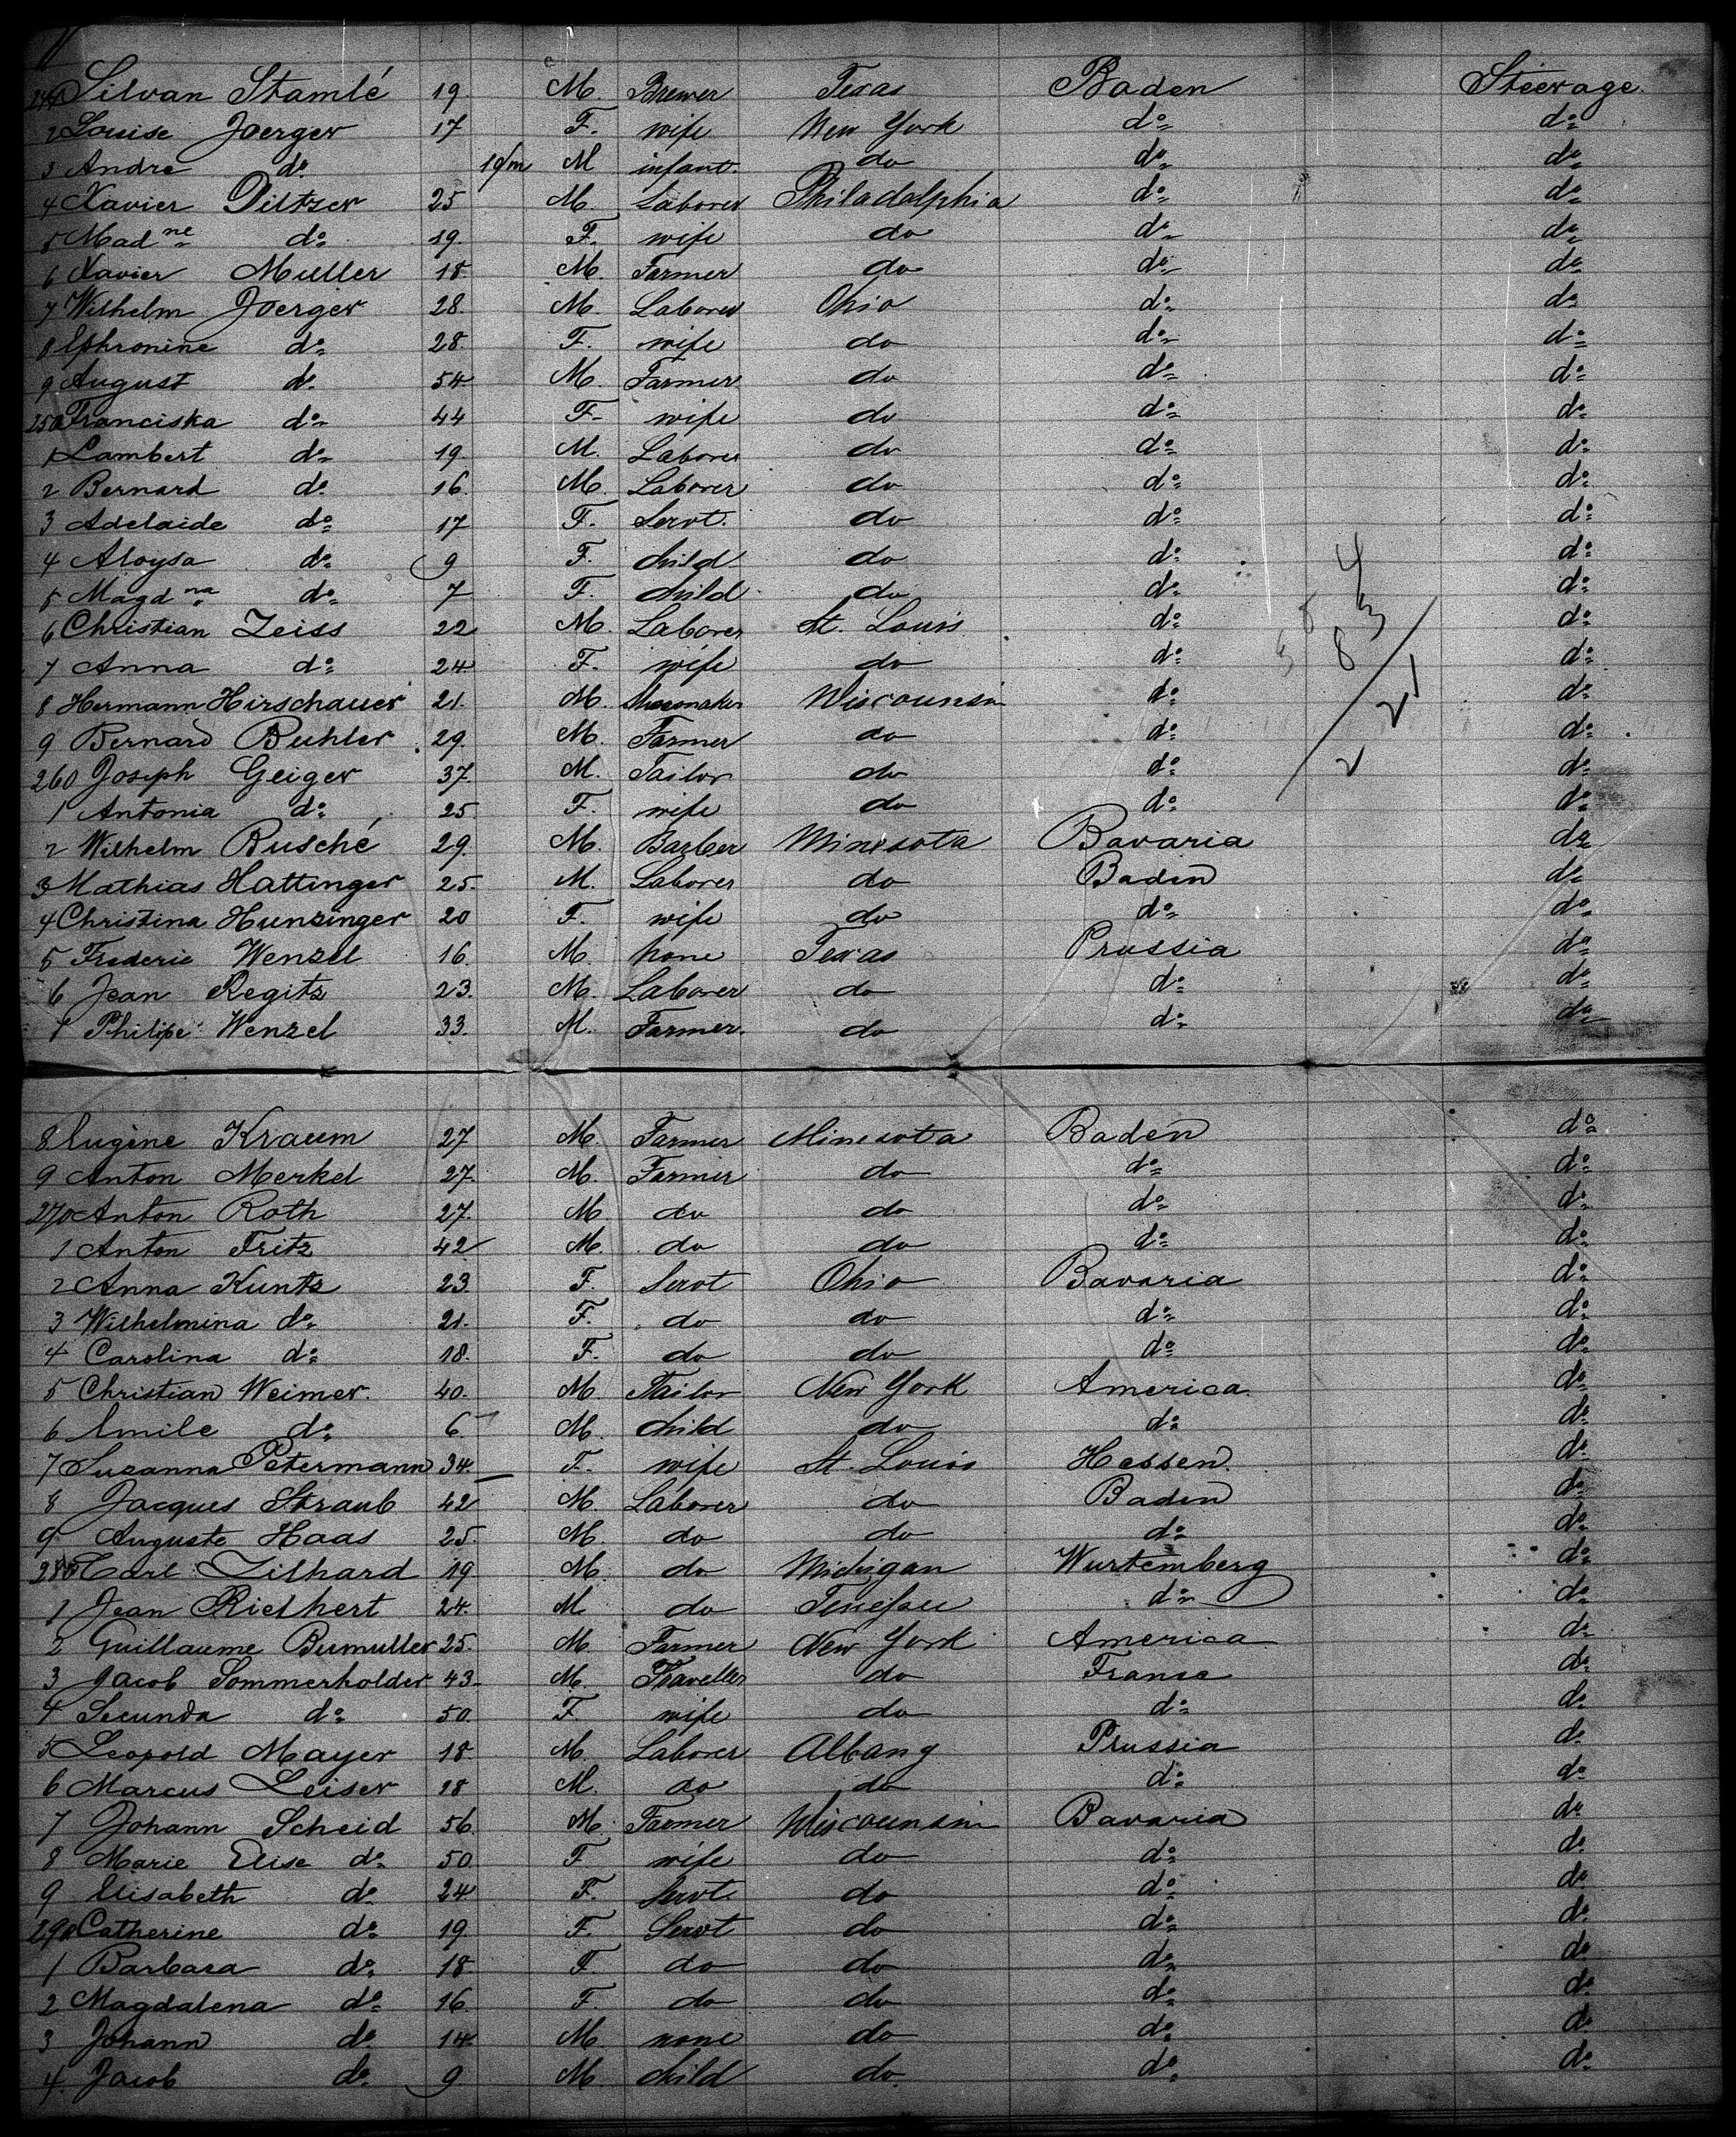 241 Silvan Stamlé 19 M. Brewer Texas Baden Steerage.
2 Louise Joerger 17 F. wife New York do do
3 Andre do 10/m M infant. do do do
4 Xavier Piltzer 25 M. Laborer Philadelphia do do
5 Mad ne do 19. F. wife do do do
6 Xavier Muller 18 M. Farmer do do do
7 Wilhelm Joerger 28. M. Laborer Ohio do do
8 Ephronine do 28. F. wife do do do
9 August do 54 M. Farmer do do do
250 Franciska do 44 F. wife do do do
1 Lambert do 19 M. Laborer do do do
2 Bernard do 16. M. Laborer do do do
3 Adelaide do 17 F. Servt. do do do
4 Aloysa do 9 F. child do do do
5 Magd na do 7 F. child do do do
6 Christian Zeiss 22 M. Laborer St. Louis do do
7 Anna do 24 F. wife do do do
8 Hermann Hirschauer 21. M. Shoemaker Wiscounsin do do
9 Bernard Buhler 29. M. Farmer do do do
260 Joseph Geiger 37. M. Tailor do do do
1 Antonia do 25 F. wife do do do
2 Wilhelm Rusché 29. M. Barber Minesota Bavaria do
3 Mathias Hattinger 25. M. Laborer do Baden do
4 Christina Hunzinger 20 F. wife do do do
5 Frederic Wenzel 16 M. none Texas Prussia do
6 Jean Regitz 23. M. Laborer do do do
7 Philipe Wenzel 33. M. Farmer. do do do
8 Eugène Kraem 27 M. Farmer Minesota Baden do
9 Anton Merkel 27. M. Farmer do do do
270 Anton Roth 27. M do do do do
1 Anton Fritz 42 M. do do do do
2 Anna Kuntz 23. F. Servt Ohio Bavaria do
3 Wilhelmina do 21. F. do do do do
4 Carolina do 18. F. do do do do
5 Christian Weimer. 40. M. Tailor New York America. do
6 Emile do 6 M. child do do do
7 Suzanna Petermann 34. F. wife St. Louis Hessen. do
8 Jacques Straub 42 M. Laborer do Baden do
9 Auguste Haas 25. M. do do do do
280 Carl Zilhard 19 M. do Michigan Wurtemberg do
1 Jean Riethert 24. M. do Tenessee do do
2 Guillaume Birmuller 25. M Farmer New York America do
3 Jacob Sommerholder 43. M. Traveller do France do
4 Secunda do 50. F. wife do do do
5 Leopold Mayer 18 M. Laborer Albany Prussia do
6 Marcus Leiser 18 M. do do do do
7 Johann Scheid 56 M. Farmer Wiscounsin Bavaria do
8 Marie Elise do 50 F wife do do do
9 Elisabeth do 24 F. Servt do do do
290 Catherine do 19. F. Servt do do do
1 Barbara do 18 F. do do do do
2 Magdalena do 16. F. do do do do
3 Johann do 14 M. none do do do
4. Jacob do 9 M. child do do do